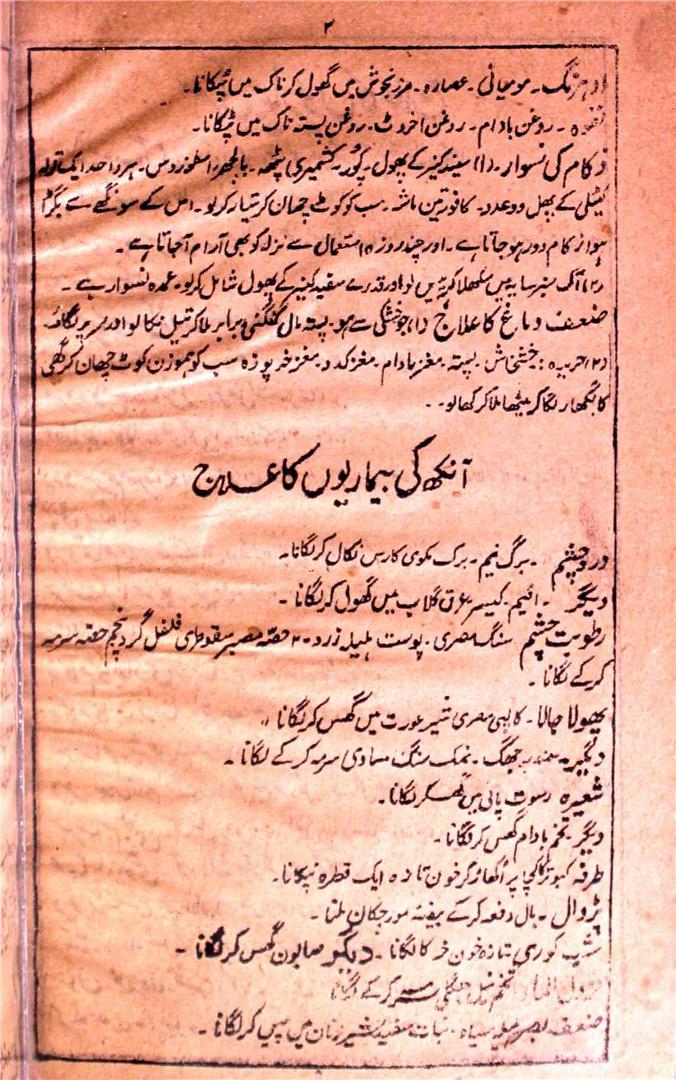 ۲
مومیائی۔ عصارہ۔ مرزنجوش میں گھول کر ناک میں ٹپکانا۔
لقوہ۔ روغن بادام۔ روغن اخروٹ۔ روغن پستہ ناک میں ٹپکانا۔
زکام کی نسوار۔ (۱) سفید کنیر کے پھول۔ کشمیری پٹھہ۔ بالچھڑ اسطخودوس۔ ہر واحد ایک تولہ
کے پھل دو عدد۔ کافور تین ماشہ۔ سب کو کوٹ چھان کر تیار کر لو۔ اس کے سونگھنے سے بگڑا
ہوا زکام دور ہو جاتا ہے۔ اور چند روزہ استعمال سے نزلہ کو بھی آرام آ جاتا ہے۔
(۲) آک سبز سایہ میں سکھلا کر پیس لو اور قدرے سفید کنیر کے پھول شامل کر لو۔ عمدہ نسوار ہے۔
ضعف دماغ کا علاج (۱) جو خشکی سے ہو۔ پستہ مال کنگنی برابر ملا کر تیل نکالو اور سر پر لگاؤ۔
(۲) حریرہ: خشخاش۔ پستہ۔ مغز بادام۔ مغز کدو۔ مغز خرپوزہ سب کو ہموزن کوٹ چھان کر گھی
کا بگھار لگا کر میٹھا ملا کر کھالو۔
آنکھ کی بیماریوں کا علاج
درد چشم۔ برگ نیم۔ برگ مکوی کا رس نکال کر لگانا۔
دیگر۔ افیم۔ کیسر عرق گلاب میں گھول کر لگانا۔
رطوبت چشم سنگ مصری۔ پوست ہلیلہ زرد۔ ۲ حصہ مصبر سقوطری فلفل گرد پنجم حصہ سرمہ
کر کے لگانا۔
پھولا جالا۔ مصری شیر عورت میں گھس کر لگانا۔
دیگر۔ سمندر جھگ۔ نمک سنگ مساوی سرمہ کر کے لگانا۔
شعیرہ رسوت پانی میں گھسکر لگانا۔
دیگر۔ تخم بادام گھس کر لگانا۔
طرفہ کبوتر کا کچا پر اُکھاڑ کر خون تازہ ایک قطرہ ٹپکانا۔
پڑوال۔ بال دفعہ کر کے بیضہ مورچگان ملنا۔
شب کوری تازہ خون خر کا لگانا۔ دیگر صابون گھس کر لگانا۔
تخم سرمہ کر کے لگانا
ضعف بصر ہلیلہ سیاہ۔ نبات سفید شیر زنان میں پیس کر لگانا۔